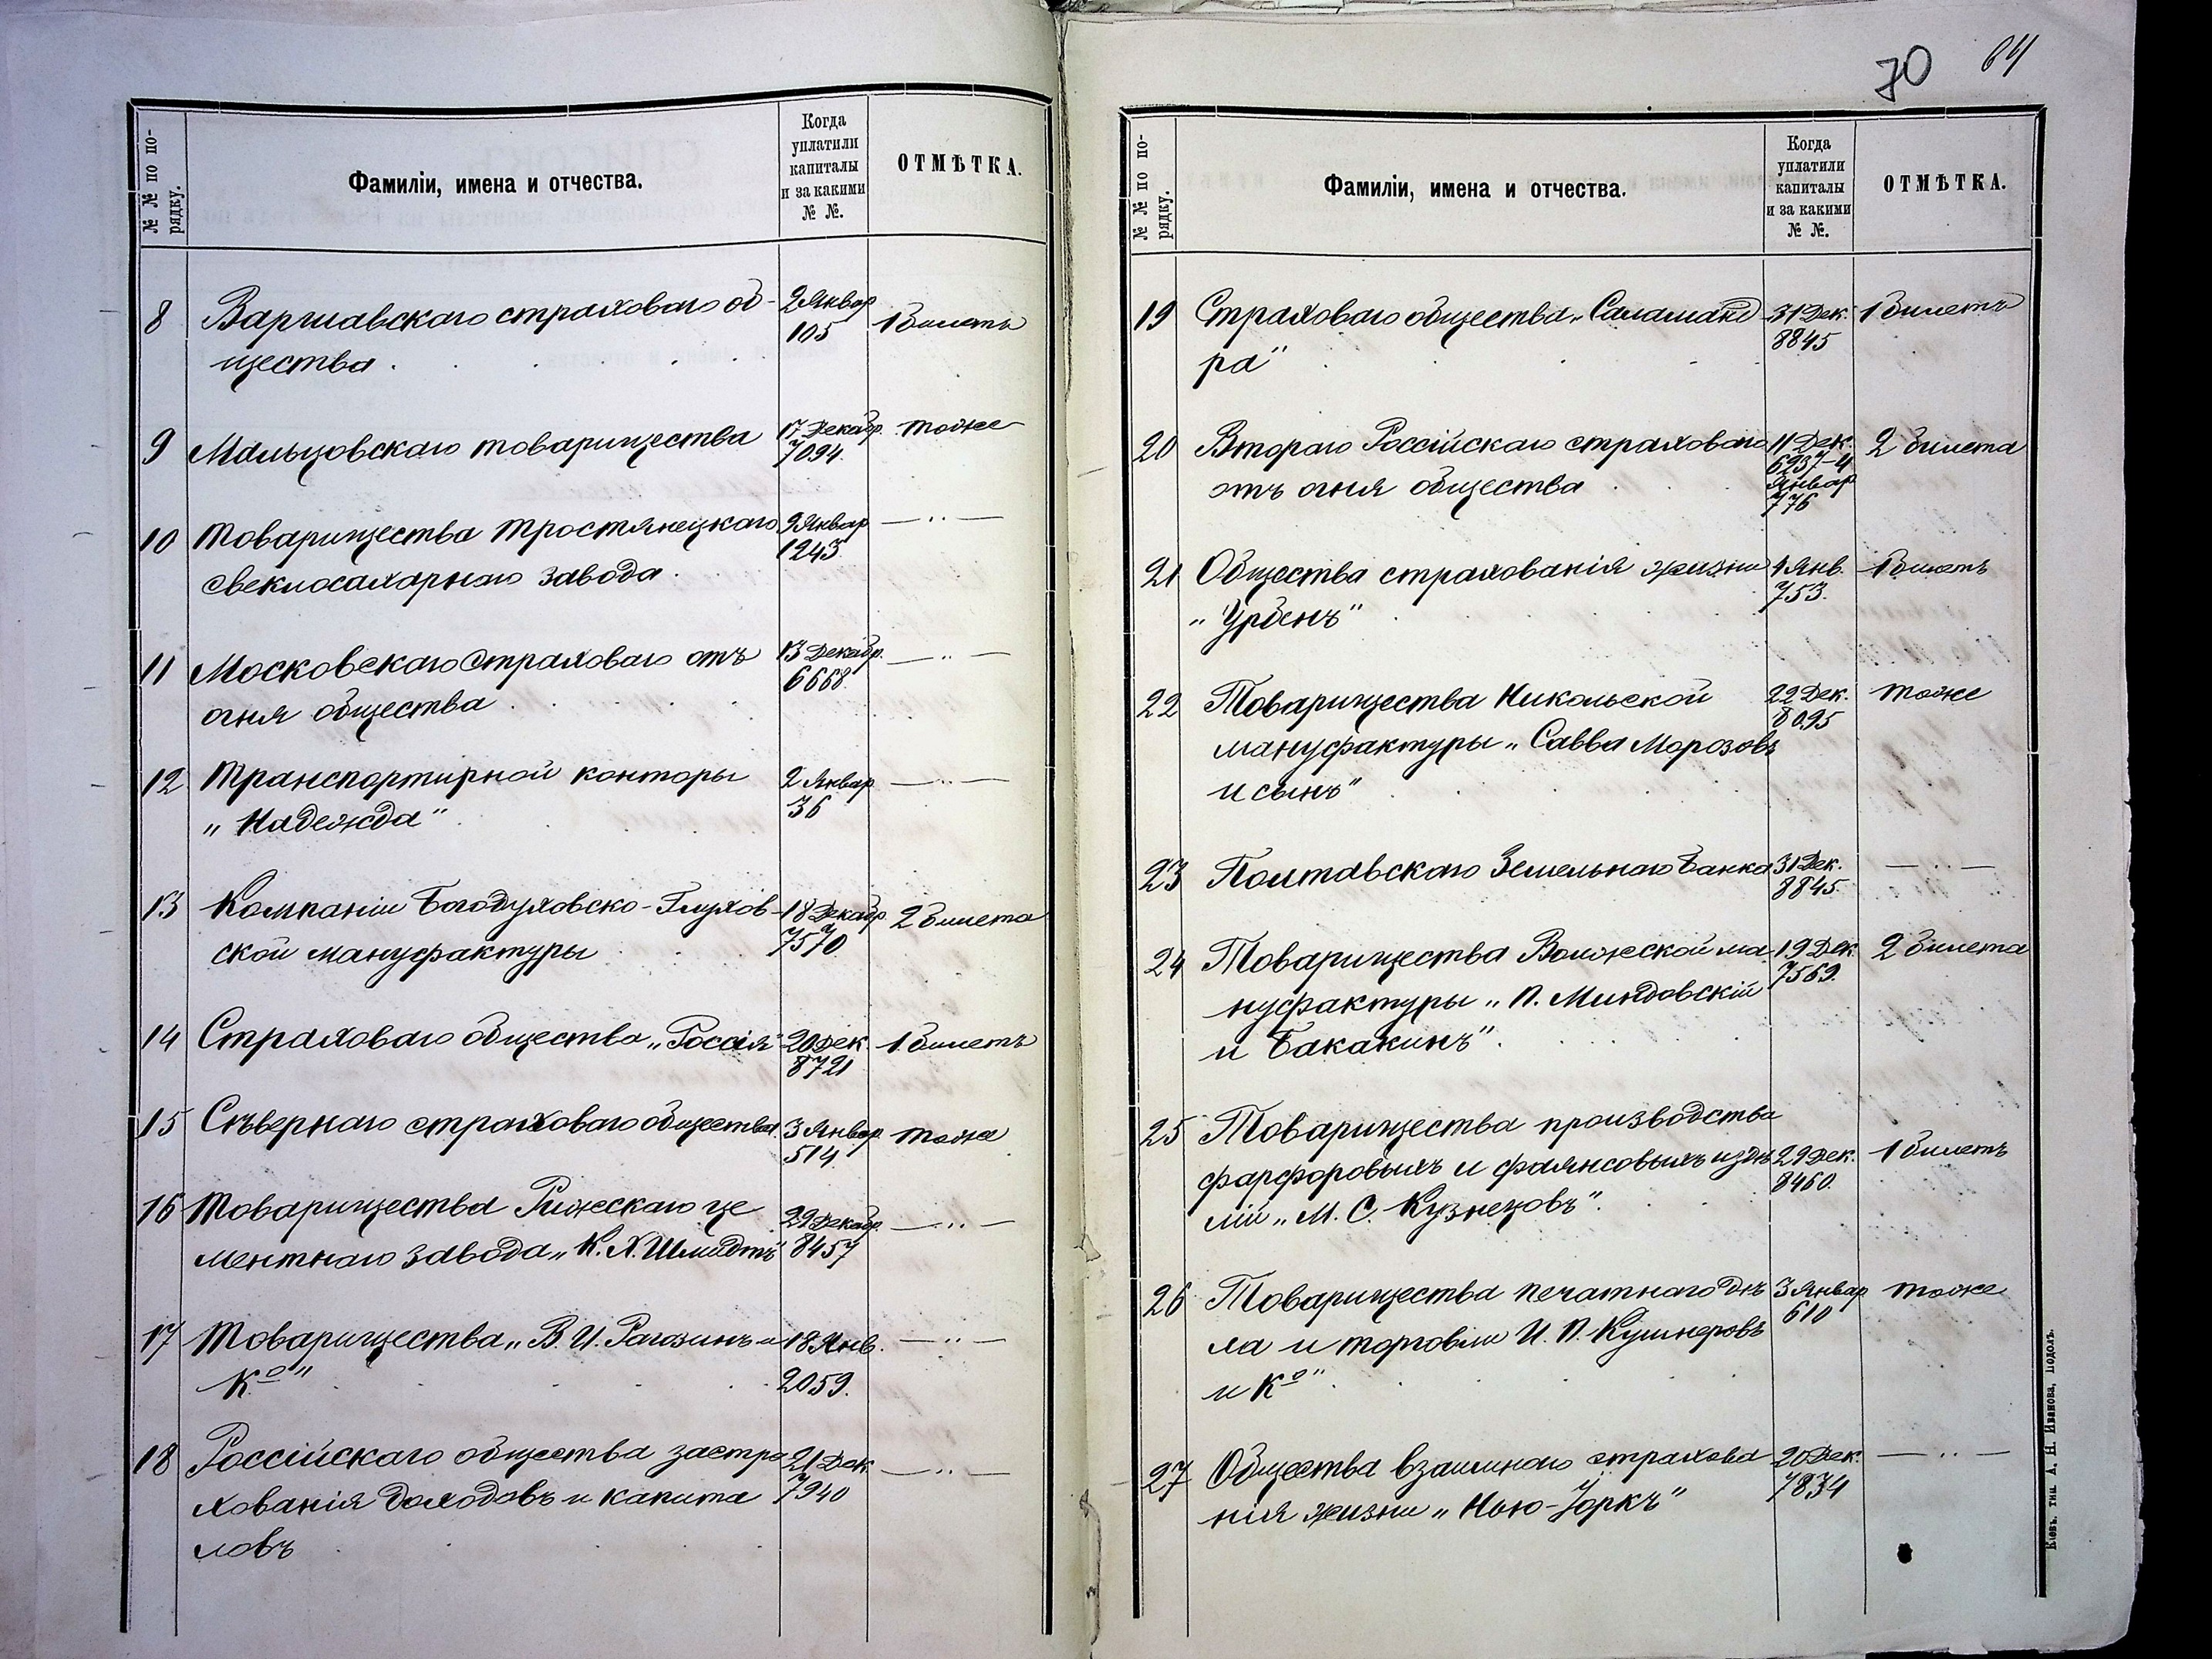 № № по по-
рядку.
Фамиліи, имена и отчества.
Когда
уплатили
капиталы
и за какими
№ №.
ОТМѢТКА.
8 Варшавскаго страховаго об- 2 Январ 1 билетъ
щества 105
9 Мальцовскаго товарищества 17 Декабр. тоже
7094.
10 Товарищества Тростянецкаго 9 Январ —〃—
свеклосахарнаго завода. 1243.
11 Московскаго Страховаго отъ 13 Декабр. —〃—
огня общества 6668.
12 Транспортирной конторы 2 Январ —〃—
„Надежда“ 36
13 Компаніи Богодуховско-Глухов- 18 Декабр. 2 билета
ской мануфактуры 7570
14 Страховаго общества „Россія“ 20 Дек. 1 билетъ
8721
15 Сѣвернаго страховаго общества. 3 Январ. тоже
514.
16 Товарищества Рижскаго це 29 Декабр. —〃—
ментнаго завода „К. Х. Шмидтъ“ 8457
17 Товарищества „В. И. Рагозинъ и 18 Янв. —〃—
К.º“ 2059.
18 Россійскаго общества застра 21 Дек. —〃—
хованія доходовъ и капита 7940
ловъ
70 64
№ № по по-
рядку.
Фамиліи, имена и отчества.
Когда
уплатили
капиталы
и за какими
№ №.
ОТМѢТКА.
19 Страховаго общества „Саламанд 31 Дек. 1 билетъ
ра“ 8845
20 Втораго Россійскаго страховаго 11 Дек. 2 билета
отъ огня общества 6237-4
Январ
776
21 Общества страхованія жизни 4 Янв. 1 билетъ
„Урбенъ“ 753.
22 Товарищества Никольской 22 Дек. тоже
мануфактуры „Савва Морозовъ 8095
и сынъ“
23 Полтавскаго Земельнаго Банка 31 Дек. —〃—
8845.
24 Товарищества Волжской ма 19 Дек. 2 билета
нуфактуры „П. Миндовскій 7569.
и Бакакинъ“.
25 Товарищества производства
фарфоровыхъ и фаянсовыхъ издѣ 29 Дек. 1 билетъ
лій „М. С. Кузнецовъ“. 8460.
26 Товарищества печатнаго дѣ 3 Январ тоже
ла и торговли И. П. Кушнеровъ 610
и Кº“
27 Общества взаимнаго страхова 20 Дек. —〃—
нія жизни „Нью-Іоркъ“ 7834
Кіевъ. тип. А. Н. Иванова, Подолъ.